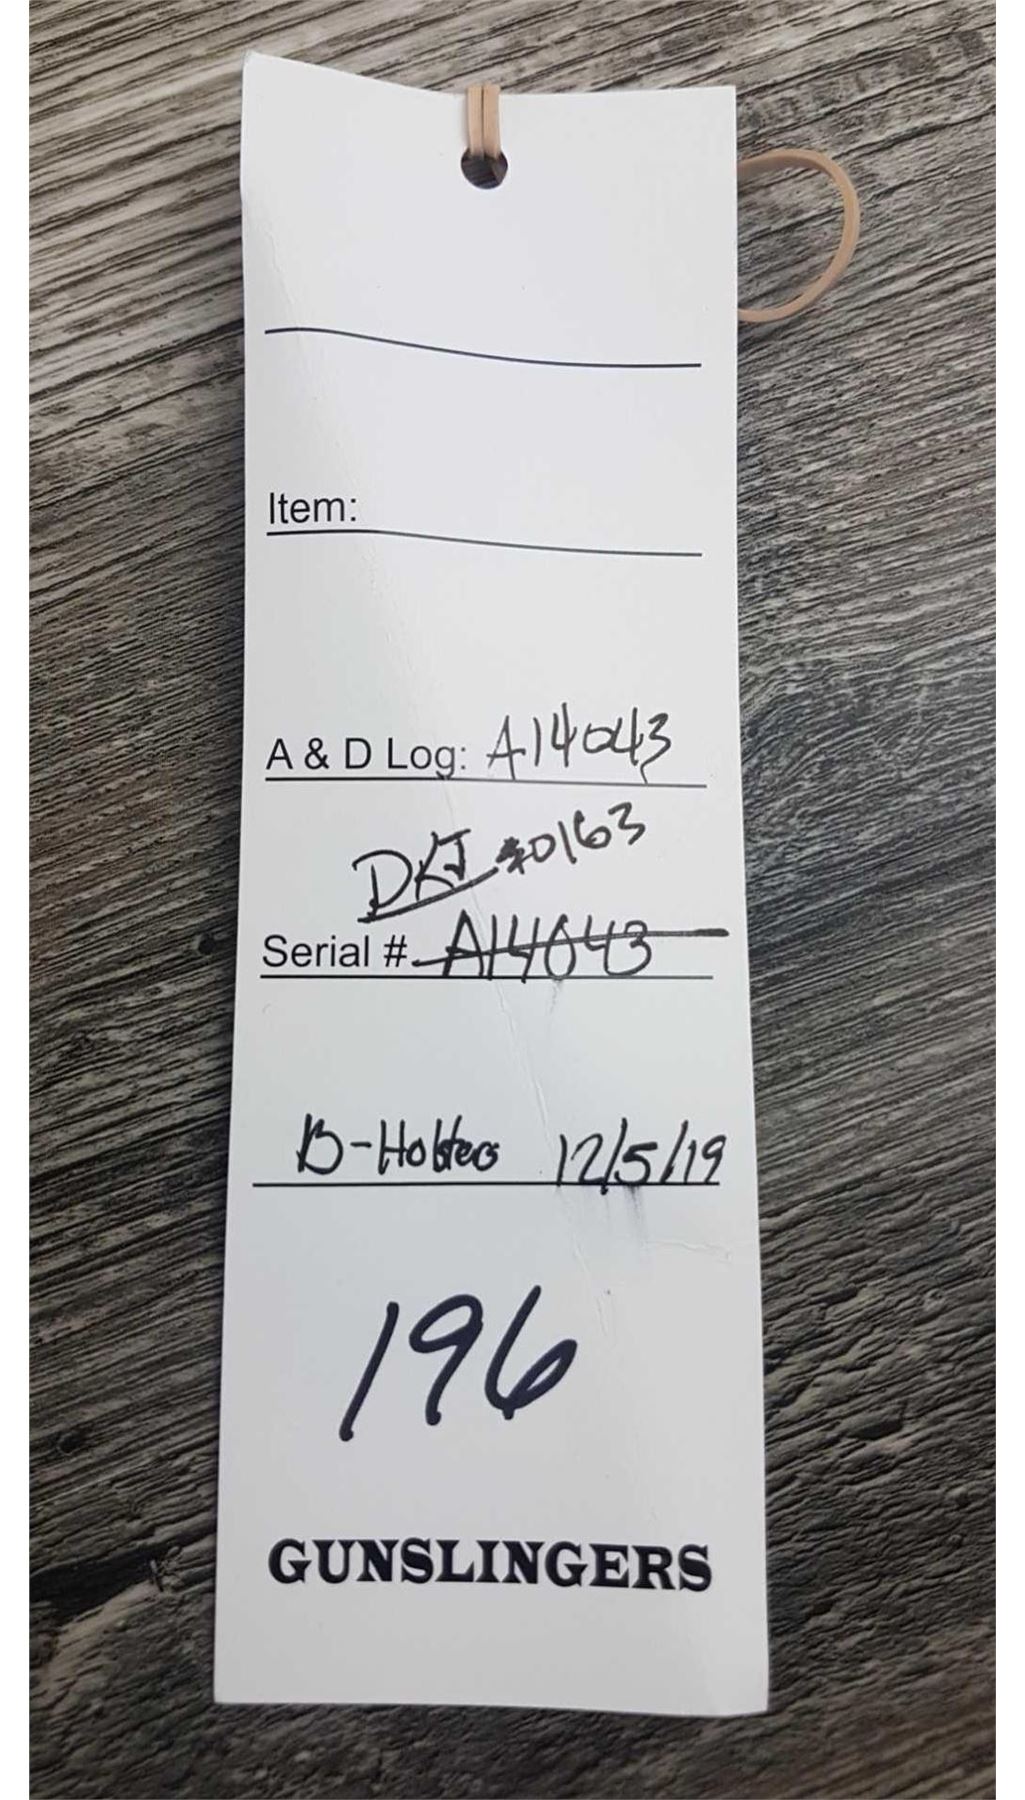 Item:
A & D Log: A14043
DKJ #0163
Serial # A14043
B-Holten 12/5/19
196
GUNSLINGERS